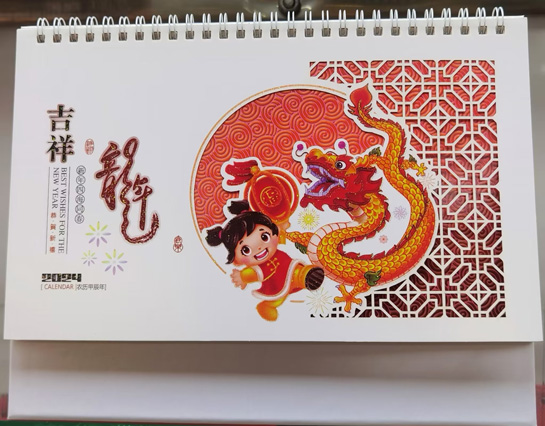 吉祥
龍年
BEST WISHES FOR THE
NEW YEAR
恭·賀·新·禧
2024
[ CALENDAR 农历甲辰年]